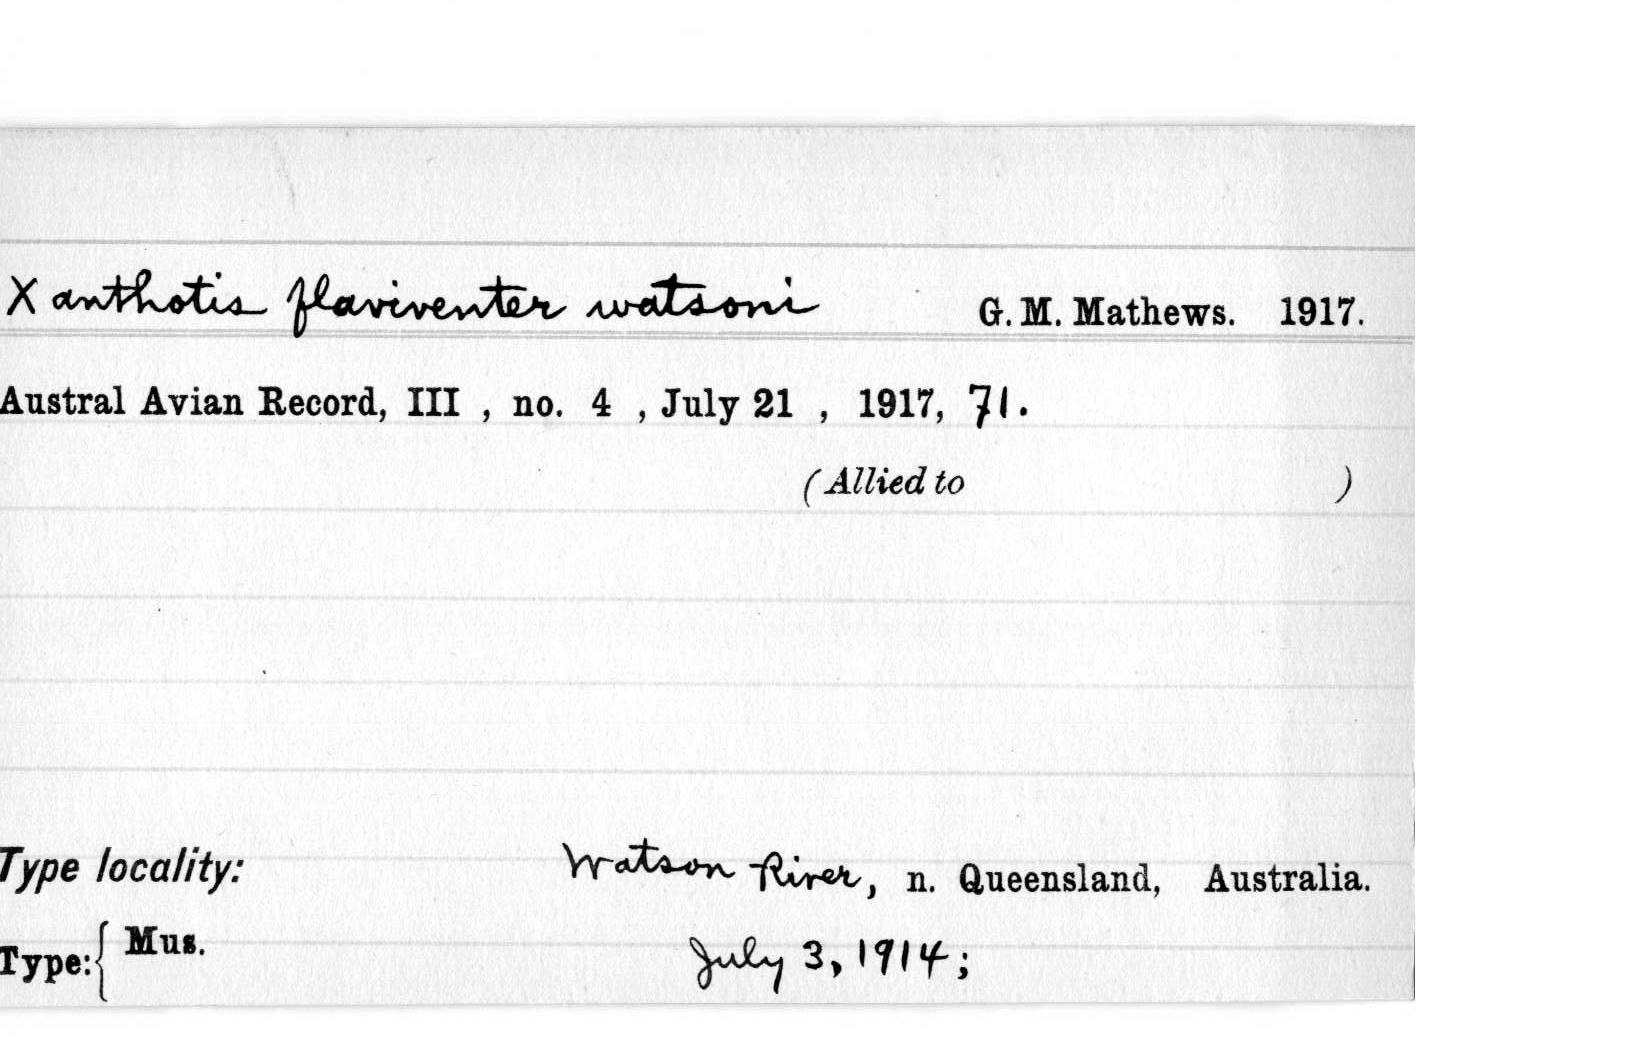 Xanthotis flaviventer watsoni G. M. Mathews. 1917.
Austral Avian Record, III , no. 4 , July 21 , 1917, 71.
(Allied to )
Type locality: Watson River, n. Queensland, Australia.
Type:{ Mus. July 3, 1914;